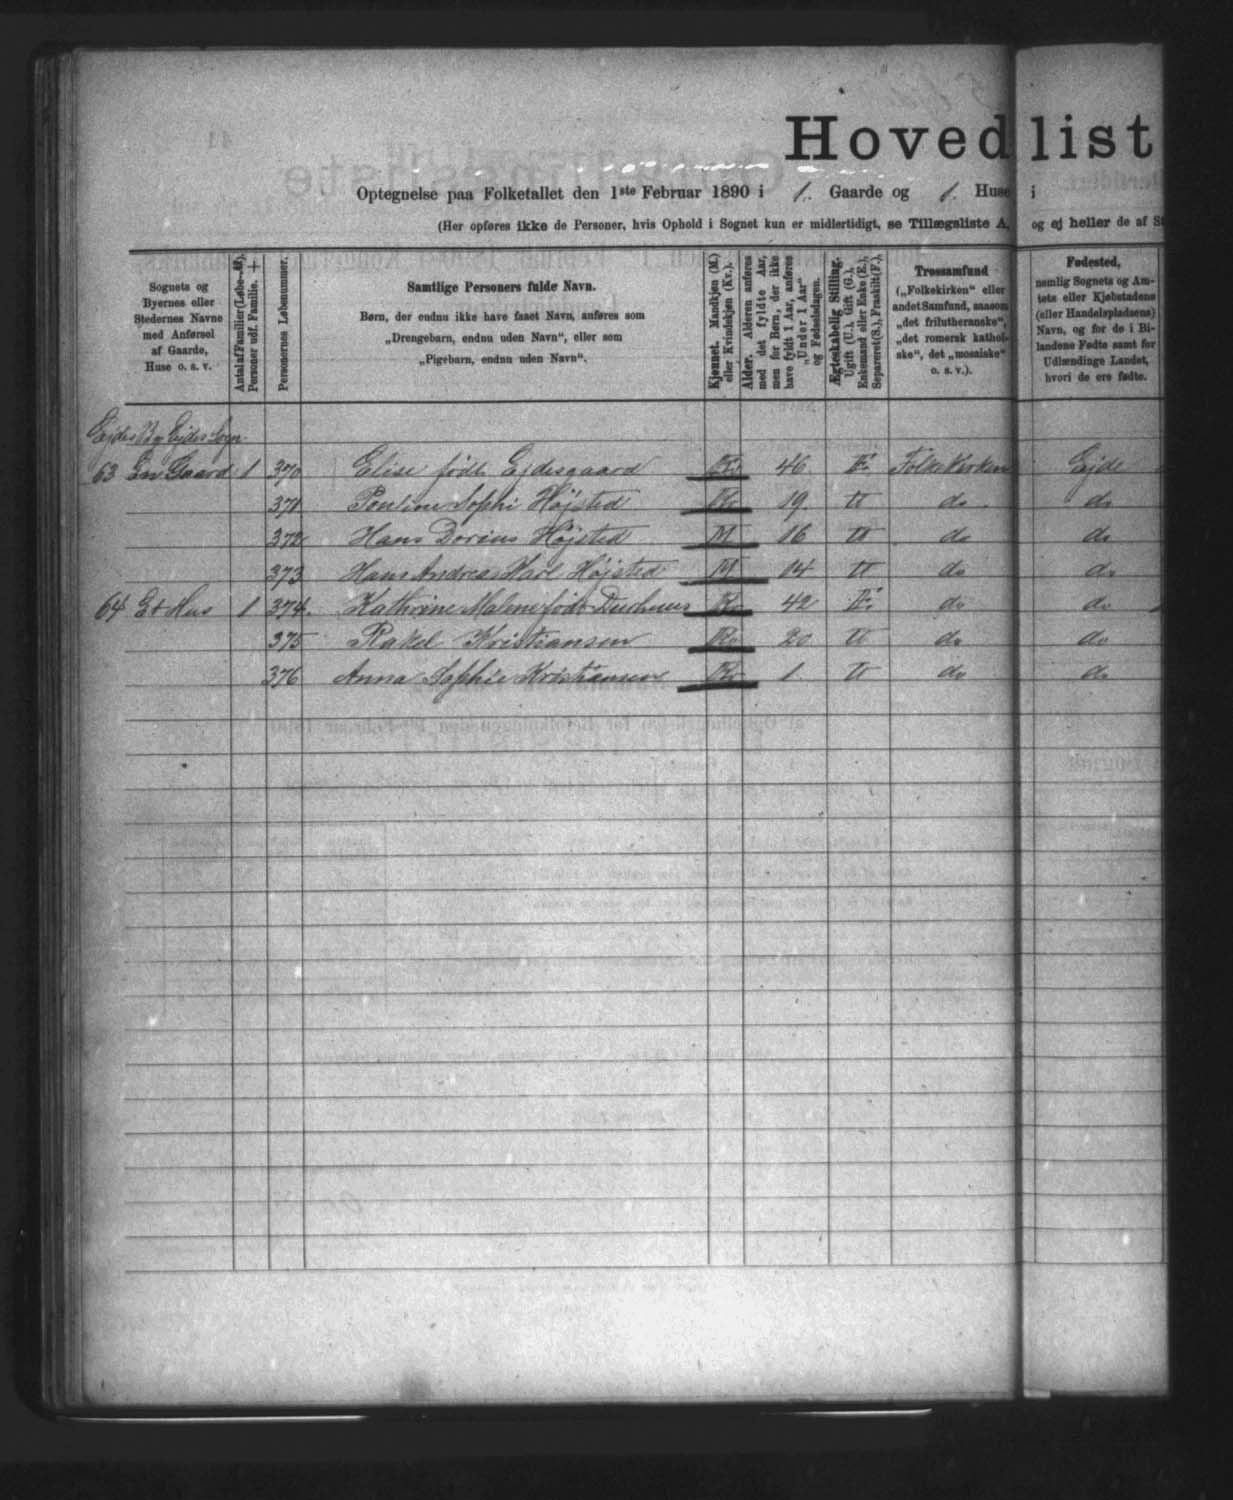 Hovedlist
Optegnelse paa Folketallet den 1ste Februar 1890 i 1. Gaarde og 1. Huse i
(Her opføres ikke de Personer, hvis Ophold i Sognet kun er midlertidigt, se Tillægsliste A, og ej heller de af St
Sognets og
Byernes eller
Stedernes Navne
med Anførsel
af Gaarde,
Huse o. s. v.
Antal af Familier (Løbe-№),
Personer udf. Familie. +
Personernes Løbenummer.
Samtlige Personers fulde Navn.
Børn, der endnu ikke have faaet Navn, anføres som
„Drengebarn, endnu uden Navn“, eller som
„Pigebarn, endnu uden Navn“.
Kjønnet. Mandkjøn (M.)
eller Kvindekjøn (Kv.).
Alder. Alderen anføres
med det fyldte Aar,
men for Børn, der ikke
have fyldt 1 Aar, anføres
„Under 1 Aar“
og Fødselsdagen.
Ægteskabelig Stilling.
Ugift (U.), Gift (G.),
Enkemand eller Enke (E.),
Separeret (S.), Fraskilt (F.),
Trossamfund
(„Folkekirken“ eller
andet Samfund, saasom
„det frilutheranske“,
„det romersk kathol-
ske“, det „mosaiske“
o. s. v.).
Fødested,
nemlig Sognets og Am-
tets eller Kjøbstadens
(eller Handelspladsens)
Navn, og for de i Bi-
landene Fødte samt for
Udlændinge Landet,
hvori de ere fødte.
Ejdes By Ejdes Sogn
63 En Gaard 1 370 Elise født Ejdesgaard Kv 46 E. Folkekirken Ejde
371 Pouline Sophi Højsted Kv 19. U do. do
372 Hans Dorius Højsted M 16 U do do
373 Hans Andreas Karl Højsted M 14 U do do
64 Et Hus 1 374. Kathrine Malene født Kv 42 E. do do
375 Rakel Kristiansen Kv 20 U do do
376 Anna Sophie Kristiansen Kv 1. U do do